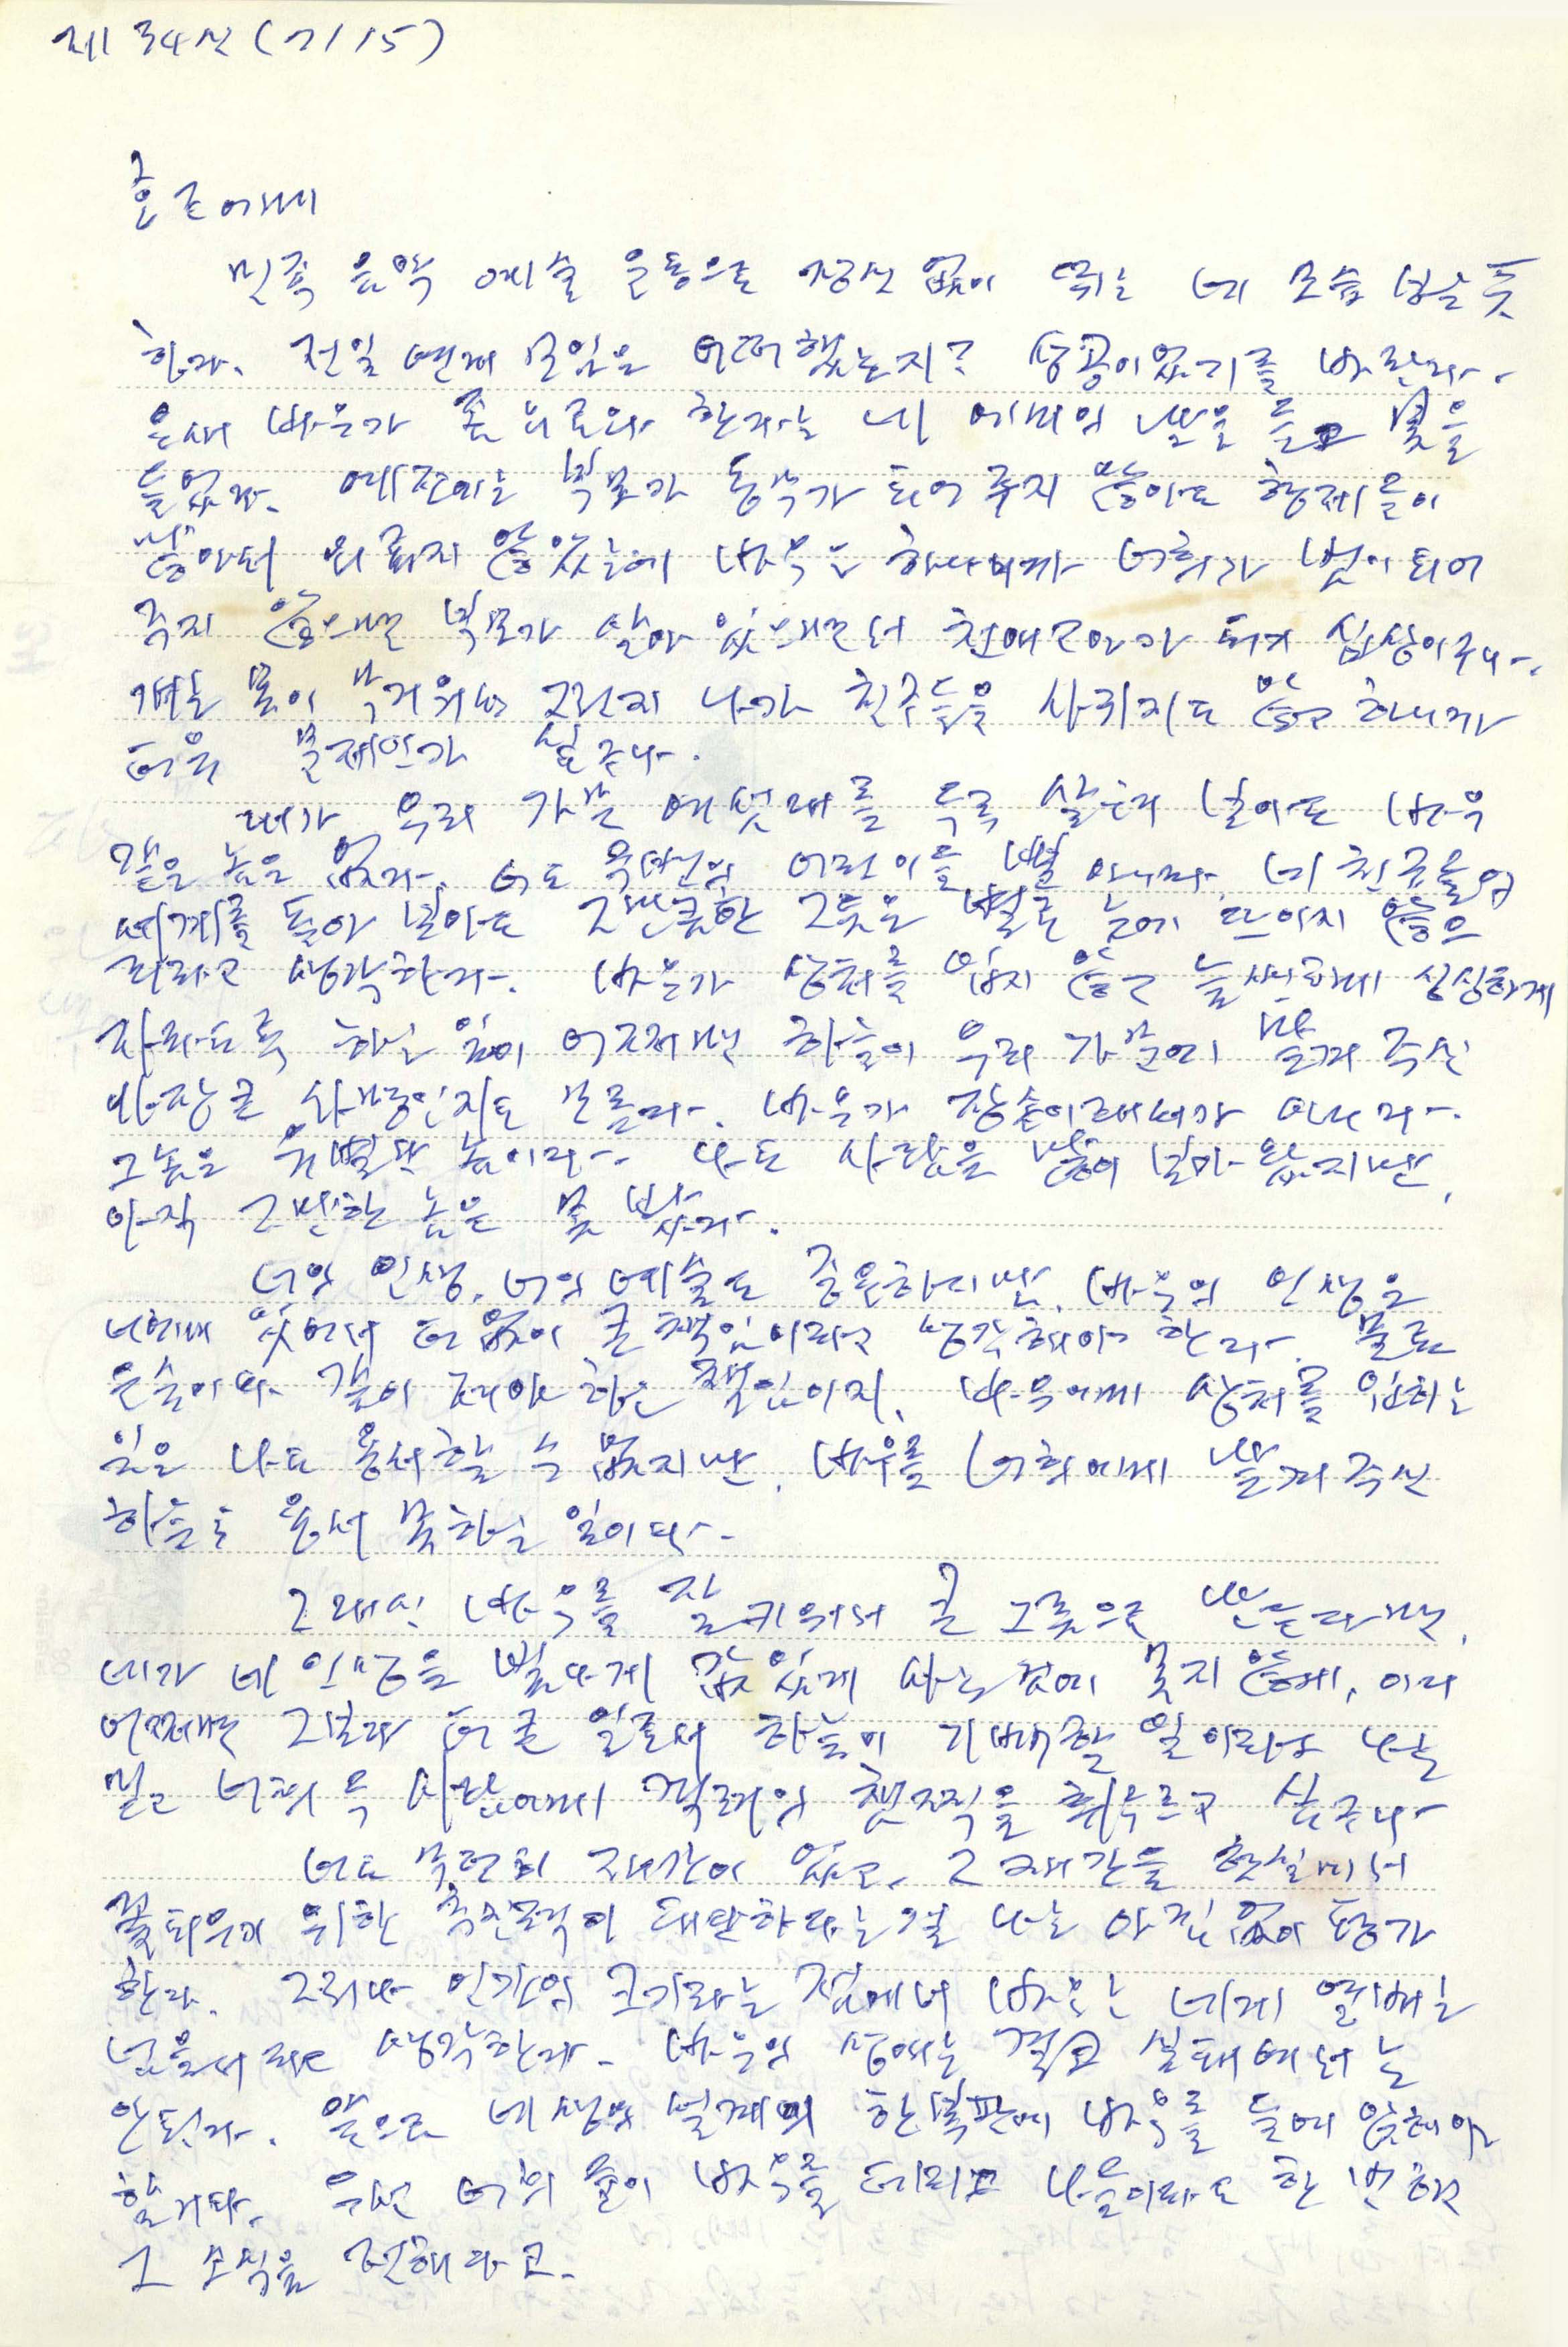 제34신 (7/15)
호근에게
민족 음악 예술 운동으로 정신 없이 뛰는 네 모습 보는 듯
하다. 전일 연세 모임은 어떠했는지? 성공이었기를 바란다.
요새 바우가 좀 외로와 한다는 네 에미의 말을 듣고 못을
들었다. 예전에는 부모가 동무가 되어 주지 않아도 형제들이
많아서 외롭지 않았는데 바우는 하나니까 너희가 벗이 되어
주지 않으면 부모가 살아 있으면서 천애고아가 되기 십상이구나.
걔는 몸이 무거워서 그런지 나가 친구들을 사귀지도 않고 하니까
더욱 문제인가 싶구나.
내가 우리 가문 예닐곱 대를 두루 살펴 보아도 바우
같은 놈은 없다. 너도 주변의 어린이들 뿐 아니라, 네 친구들의
세계를 돌아 보아도 그만큼한 그릇은 별로 눈에 뜨이지 않으
리라고 생각한다. 바우가 상처를 입지 않고 늘씬하게 싱싱하게
자라도록 하는 일이 어쩌면 하늘이 우리 가문에 맡겨 주신
가장 큰 사명인지도 모른다. 바우가 장손이래서가 아니다.
그놈은 유별난 놈이다. 나도 사람을 많이 보아 왔지만,
아직 그만한 놈은 못 봤다.
너의 인생, 너의 예술도 중요하지만, 바우의 인생은
너에게 있어서 더 없이 큰 책임이라고 생각해야 한다. 물론
은숙이와 같이 져야 하는 책임이지. 바우에게 상처를 입히는
일은 나도 용서할 수 없지만, 바우를 너희에게 맡겨 주신
하늘도 용서 못하는 일이다.
그 대신 바우를 잘 키워서 큰 그릇으로 만든다면,
네가 네 인생을 빛나게 값있게 사는 것에 못지 않게, 아니
어쩌면 그보다 더 큰 일로서 하늘이 기뻐할 일이라고 나는
믿고 너희 두 사람에게 격려의 채찍을 휘두르고 싶구나.
너도 무던히 재간이 있고, 그 재간을 현실에서
꽃피우기 위한 추진력이 대단하다는 걸 나는 아낌없이 평가
한다. 그러나 인간의 크기라는 점에서 바우는 네게 열 배는
넘을 거라고 생각한다. 바우의 생에는 결코 실패해서는
안된다. 앞으로 네 생의 설계의 한복판에 바우를 들여 앉혀야
할거다. 우선 너희 둘이 바우를 데리고 나들이라도 한 번 하고
그 소식을 전해 다고.